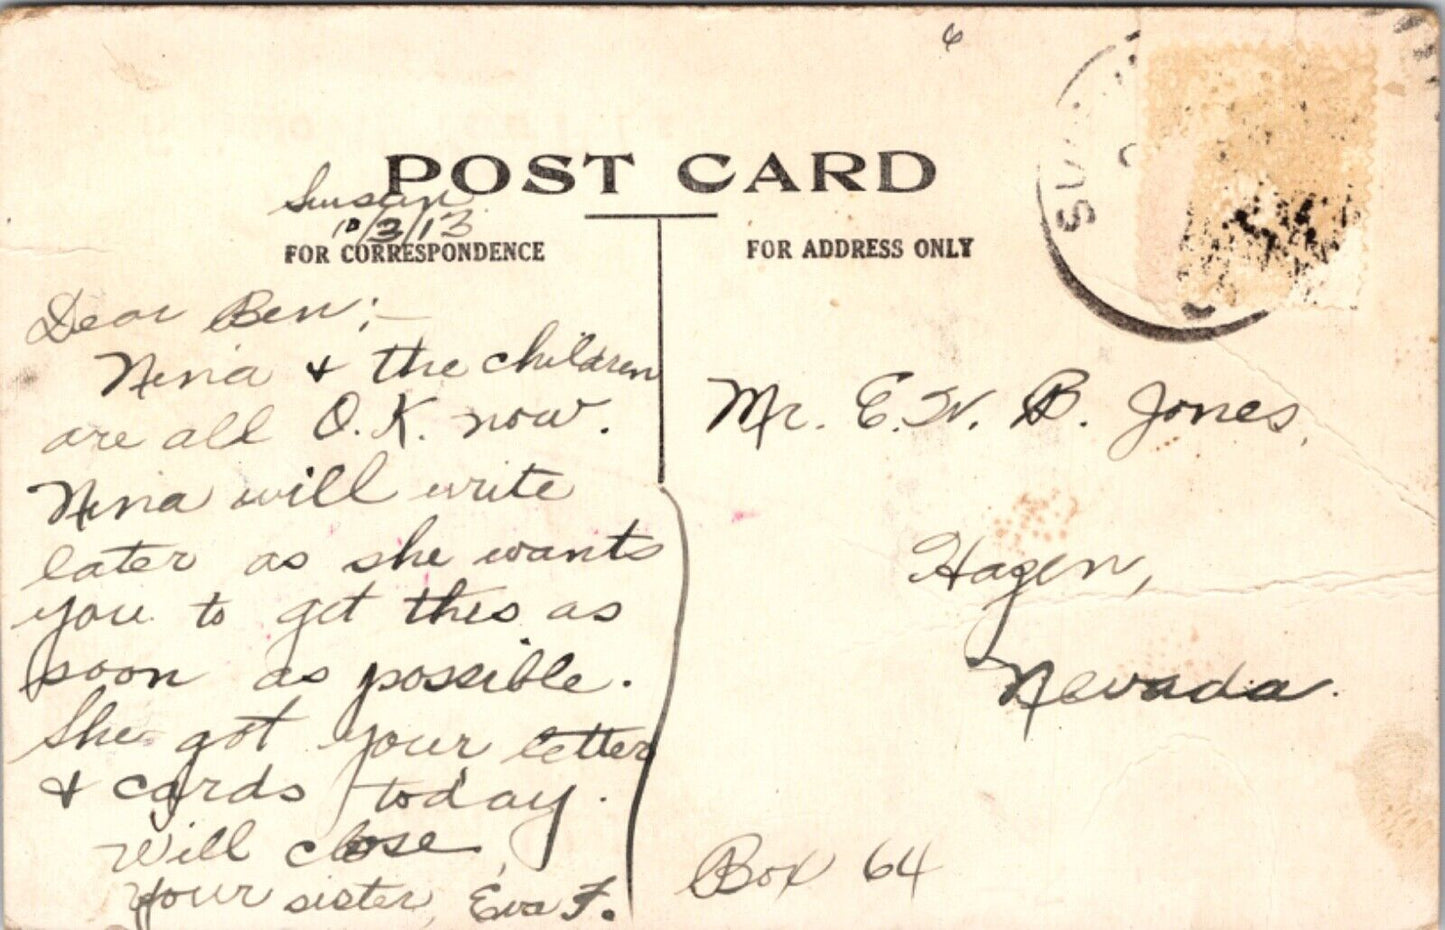 6
POST CARD
Susan
10/3/13
FOR CORRESPONDENCE
FOR ADDRESS ONLY
Dear Ben;—
Nina & the children
are all O.K. now.
Nina will write
later as she wants
you to get this as
soon as possible.
She got your letter
& cards today.
Will close,
Your sister, Eva F.
Mr. E. W. B. Jones,
Hazen,
Nevada.
Box 64